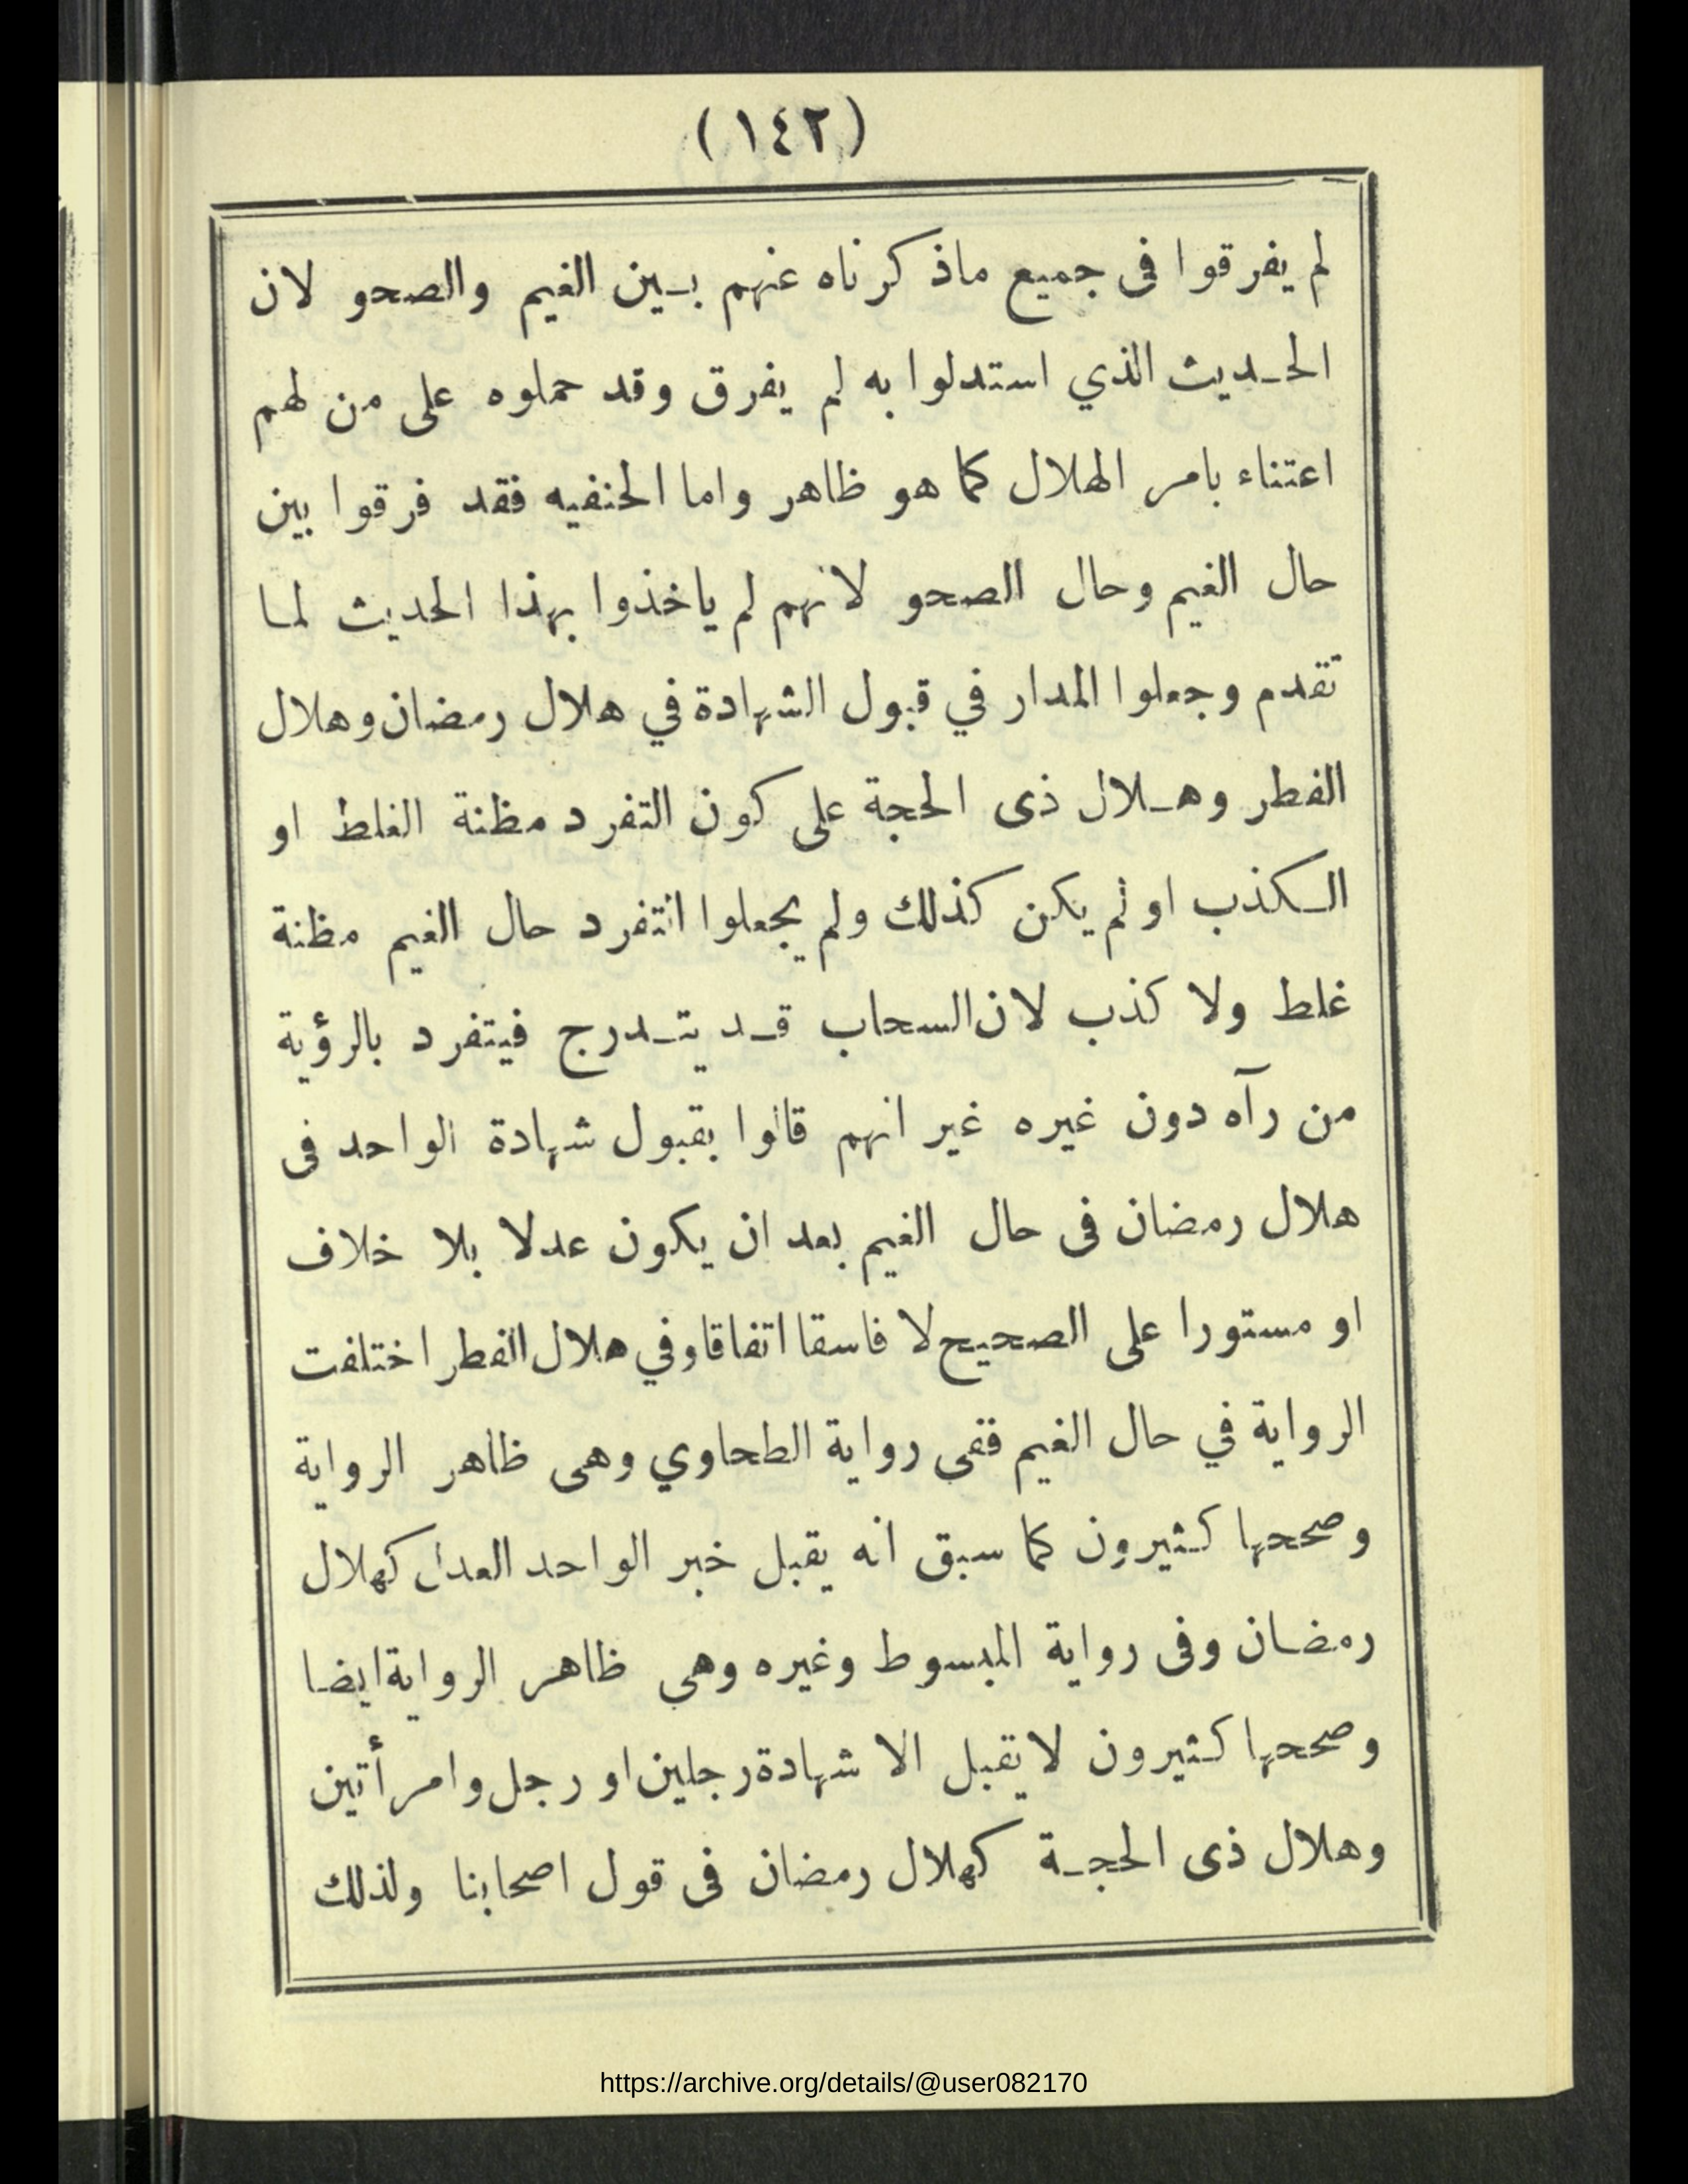 (١٤٢)
لم يفرقوا فى جميع ماذكرناه عنهم بين الغيم والصحو لان
الحديث الذي استدلوا به لم يفرق وقد حملوه على من لهم
اعتناء بامر الهلال كما هو ظاهر واما الحنفيه فقد فرقوا بين
حال الغيم وحال الصحو لانهم لم ياخذوا بهذا الحديث لما
تقدم وجعلوا المدار في قبول الشهادة في هلال رمضان وهلال
الفطر وهلال ذى الحجة على كون التفرد مظنة الغلط او
الكذب او لم يكن كذلك ولم يجعلوا التفرد حال الغيم مظنة
غلط ولا كذب لان السحاب قد يتدرج فيتفرد بالرؤية
من رآه دون غيره غير انهم قالوا بقبول شهادة الواحد فى
هلال رمضان فى حال الغيم بعد ان يكون عدلا بلا خلاف
او مستورا على الصحيح لا فاسقا اتفاقا وفي هلال الفطر اختلفت
الرواية في حال الغيم ففى رواية الطحاوي وهى ظاهر الرواية
وصححها كثيرون كما سبق انه يقبل خبر الواحد العدل كهلال
رمضان وفى رواية المبسوط وغيره وهى ظاهر الرواية ايضا
وصححها كثيرون لا يقبل الا شهادة رجلين او رجل وامرأتين
وهلال ذى الحجة كهلال رمضان فى قول اصحابنا ولذلك
https://archive.org/details/@user082170